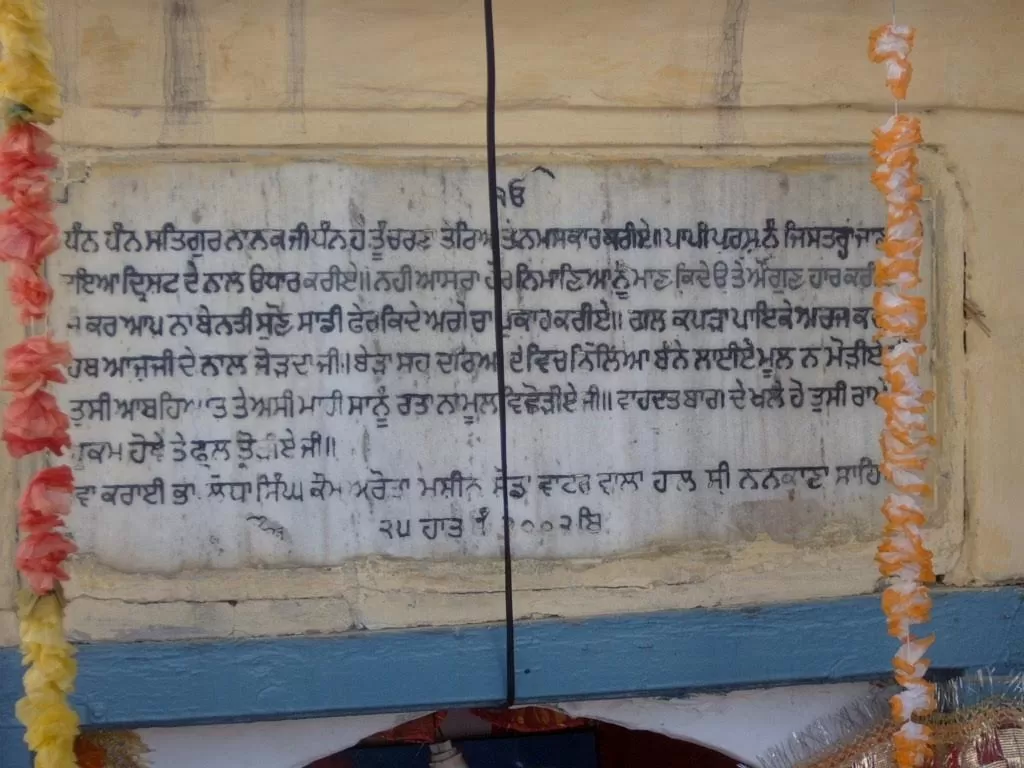 ੴ
ਧੰਨ ਧੰਨ ਸਤਿਗੁਰ ਨਾਨਕ ਜੀ ਧੰਨ ਹੋ ਤੂੰ ਚਰਣ ਤੇਰਿਆਂ ਤੇ ਨਮਸਕਾਰ ਕਰੀਏ॥ ਪਾਪੀ ਪੁਰਸ਼ ਨੂੰ ਜਿਸਤਰ੍ਹਾਂ
ਦ੍ਰਿਸਟ ਦੇ ਨਾਲ ਉਧਾਰ ਕਰੀਏ॥ ਨਹੀ ਆਸਰਾ ਹੋਰ ਨਿਮਾਣਿਆ ਨੂੰ ਮਾਣ ਕਿਦੇ ਉਤੇ ਔਗੁਣ ਹਾਰ
ਕਰ ਆਪ ਨਾ ਬੇਨਤੀ ਸੁਣੋ ਸਾਡੀ ਫੇਰ ਕਿਦੇ ਅਗੇ ਚਾ ਪੁਕਾਰ ਕਰੀਏ॥ ਗਲ ਕਪੜਾ ਪਾਇਕੇ ਅਰਜ
ਹਥ ਆਜਜੀ ਦੇ ਨਾਲ ਜੋੜਦਾ ਜੀ॥ ਬੇੜਾ ਸਹ ਦਰਿਆ ਦੇ ਵਿਚ ਠਿਲਿਆ ਬੰਨੇ ਲਾਈਏ ਮੂਲ ਨ ਮੋੜੀਏ
ਤੁਸੀ ਤੇ ਅਸੀ ਮਾਹੀ ਸਾਨੂੰ ਰਤਾ ਨਾ ਮੂਲ ਵਿਛੋੜੀਏ ਜੀ॥ ਵਾਹਦਤ ਬਾਗ ਦੇ ਖਲੇ ਹੋ ਤੁਸੀ
ਹੁਕਮ ਹੋਵੇ ਤੇ ਫੁਲ ਤ੍ਰੋੜੀਏ ਜੀ॥
ਕਰਾਈ ਭਾ. ਲਧਾ ਸਿੰਘ ਕੌਮ ਅਰੋੜਾ ਮਸ਼ੀਨ ਸੋਡਾ ਵਾਟਰ ਵਾਲਾ ਹਾਲ ਸ੍ਰੀ ਨਨਕਾਣਾ ਸਾਹਿ
੨੫ ਹਾੜ ੨੦੦੨ ਬਿ